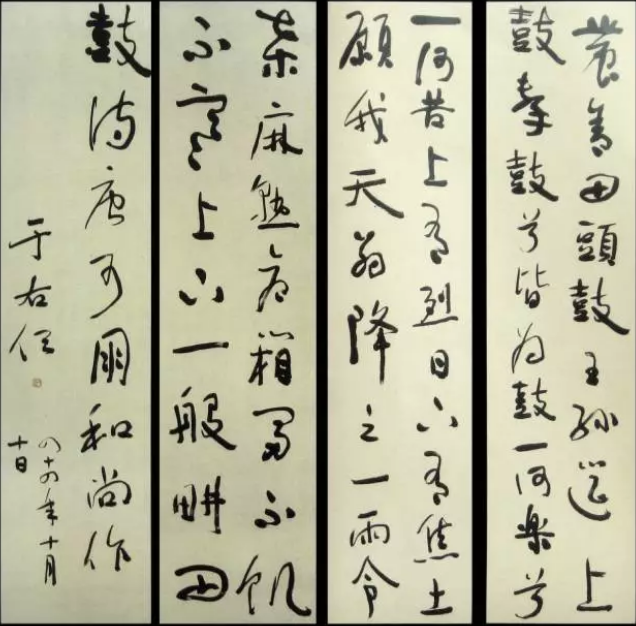 農舍田頭鼓王孫筵上
鼓擊鼓兮皆為鼓一何楽兮
一何苦上有烈日下有焦土
願我天翁降之一雨令
桒麻熟倉箱富不飢
不寒上下一般畊田
鼓詩唐可朋和尚作
于右任
四十四年十月
十日